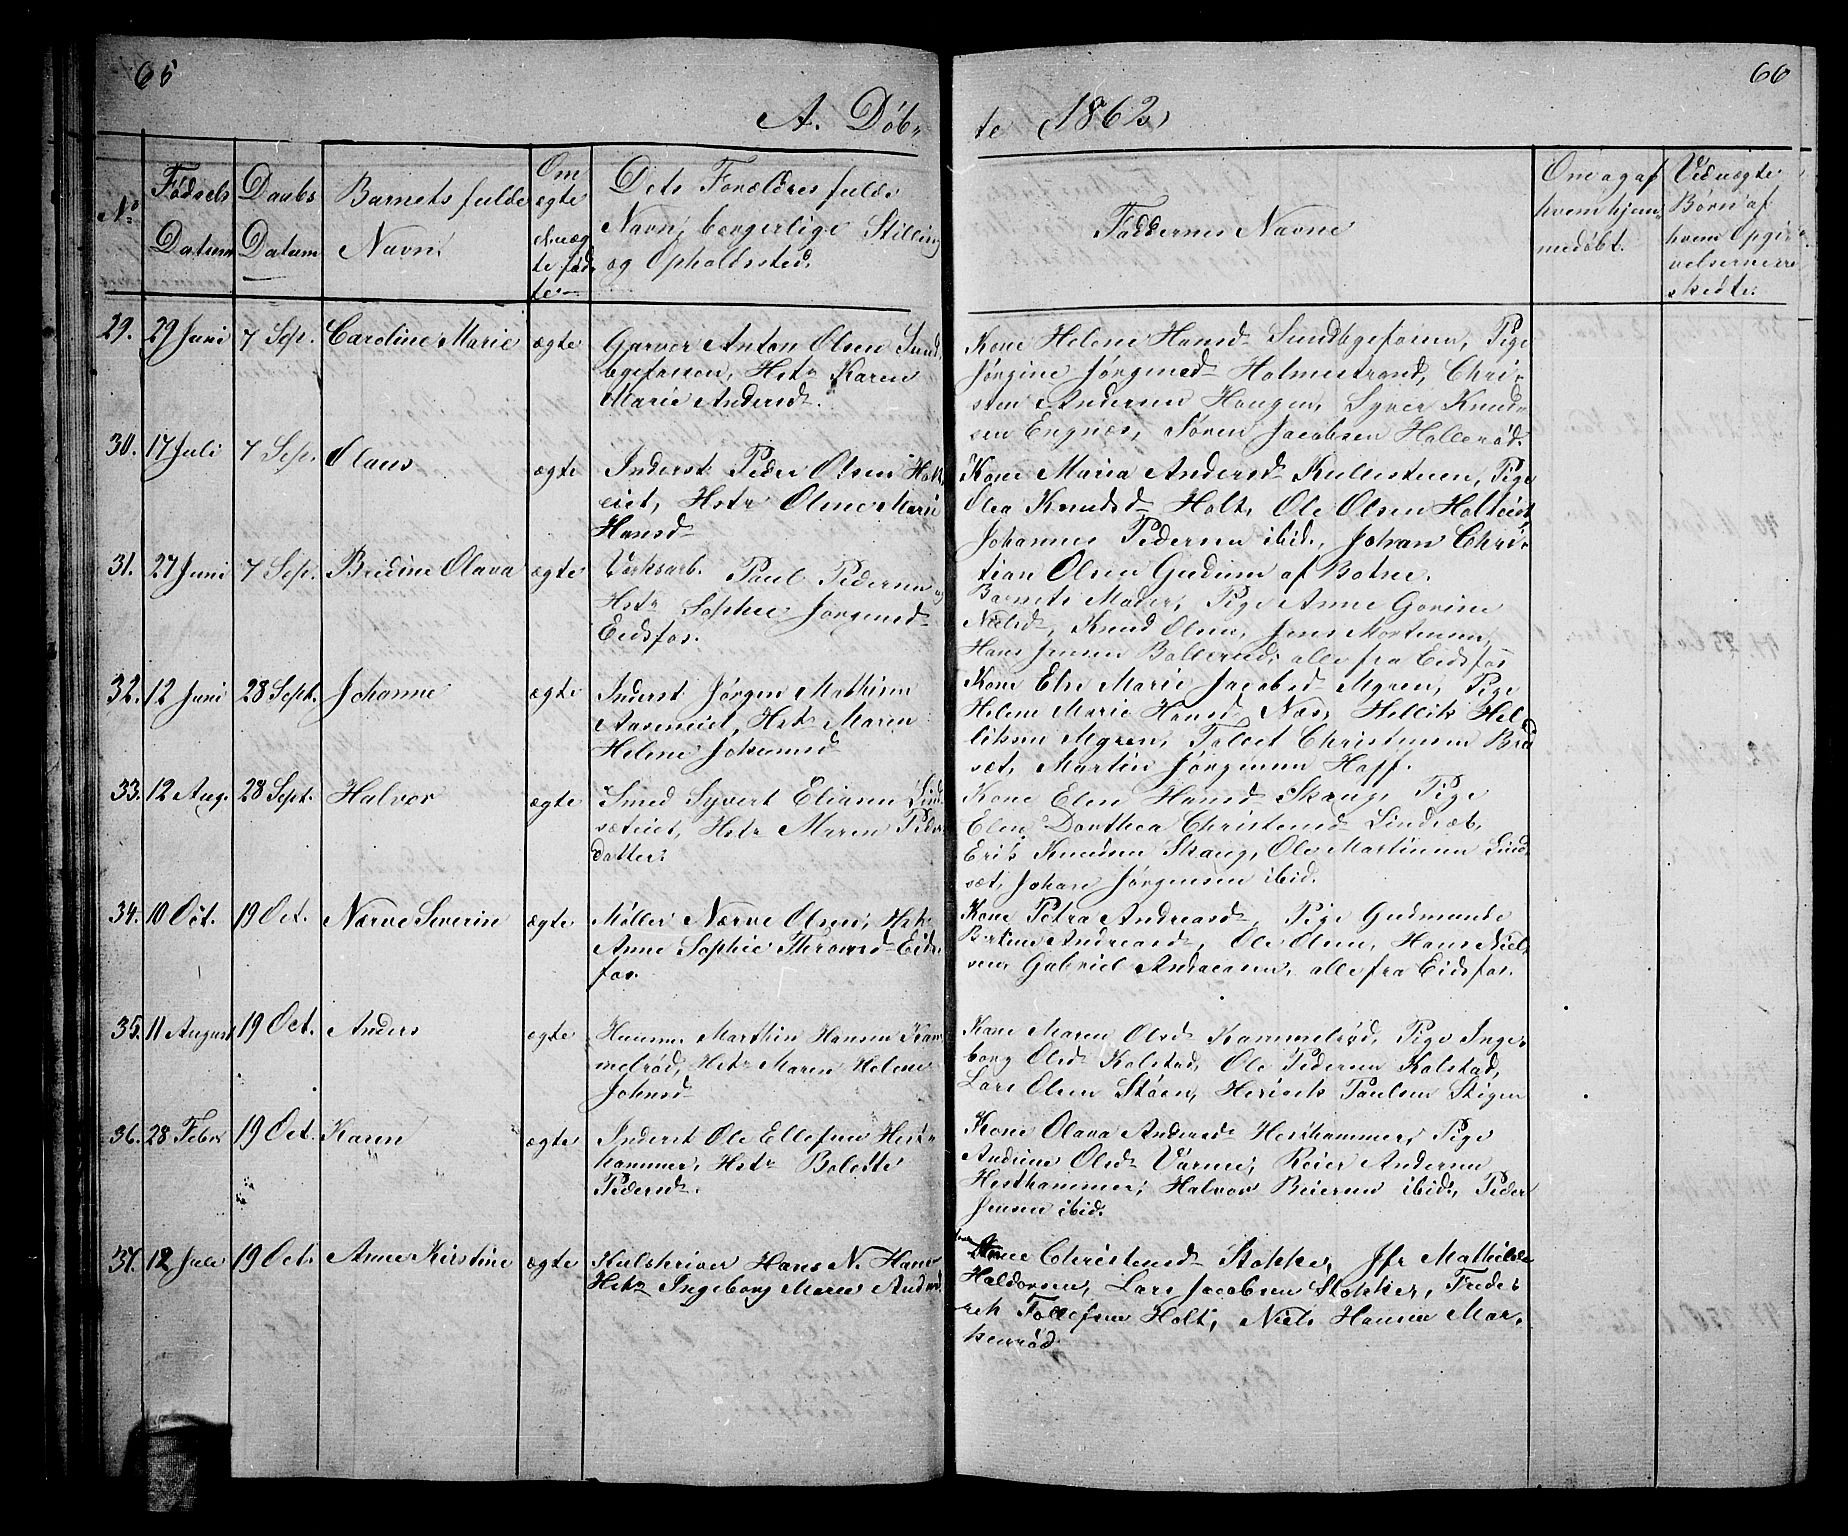 65
66
A. Døb-
te (1862)
No
Fødsels
Datum
Daabs
Datum
Barnets fulde
Navn.
Om
ægte
el. uæg
te fød
te.
Dets Forældres fulde
Navn, borgerlige Stilling
og Opholdssted.
Faddernes Navne
Om og af
hvem hjem
medøbt.
Ved uægte
Børn af
hvem Opgi-
velserne ere
skedte.
29. 29 Juni 7 Sep. Caroline Marie ægte Garver Anton Olsen Sund
bgefossen, Hstr Karen
Marie Andersd.
Kone Helene Hansd Sundbyefossen, Pige
Jørgine Jørgensd Holmestrand, Chri-
sten Andersen Haugen, Syver Knud
sen Engnæs, Søren Jacobsen Hallerød.
30. 17 Juli 7 Sep. Olaus ægte Inderst Peder Olsen Holt
eiet, Hstr Oline Marie
Hansd
Kone Maria Andersd Kullestuen, Pige
Olea Knudsd Holt, Ole Olsen Holteiet
Johannes Pedersen ibid., Johan Chri-
tian Olsen Gudum af Botne.
31. 27 Juni 7 Sep. Bredine Olava ægte Værksarb. Paul Pedersen og
Hstr Sophie Jørgensd
Eidsfos.
Barnets Moder, Pige Anne Gorine
Nielsd, Knud Olsen, Jens Mortensen,
Hans Jensen Bollerud, alle fra Eidsfos
32. 12 Juni 28 Sept. Johanne ægte Inderst Jørgen Mathisen
Aaseneiet, Hstr Maren
Helene Johansd
Kone Else Marie Jacobsd Myren, Pige
Helene Marie Hansd Næs, Hellik Hel
liksen Myren, Tolvet Christensen Bui
sæt, Martin Jørgensen Hoff.
33. 12 Aug. 28 Sept. Halvor ægte Smed Syvert Eliasen Lind
sæteiet, Hstr Maren Peders
datter.
Kone Elen Hansd Skaug, Pige
Elen Dorthea Christensd Lindsæt,
Eric Knudsen Skaug, Ole Martinsen Lind
sæt, Johan Jørgensen ibid.
34. 10 Oct. 19 Oct. Narve Severin ægte Møller Narve Olsen, Hstr
Anne Sophie Thronsd Eids
fos.
Kone Petra Andreasd, Pige Gudmunde
Bertine Andreasd, Ole Olsen, Hans Niel
sen, Gabriel Andreasen, alle fra Eidsfos.
35. 11 August 19 Oct. Anders ægte Huusm. Marthin Hansen Kam
melrød, Hstr Maren Helene
Johnsd
Kone Maren Olsd Kammelrød, Pige Inge-
borg Olsd Kolstad, Ole Pedersen Kolstad,
Lars Olsen Støen, Henrik Paulsen Stigen
36. 28 Febr 19 Oct. Karen ægte Inderst Ole Ellefsen Hest-
hammer, Hstr Bolette
Pedersd.
Kone Olava Andersd Hesthammer, Pige
Andrine Olsd Varme, Reier Andersen
Hesthammer, Halvor Reiersen ibid, Peder
Jensen ibid.
37. 12 Juli 19 Oct. Anne Kirstine ægte Kulskriver Hans N. Hans
Hstr Ingeborg Marie Andersd
Anne Christensd Stokke, Jfr Mathilde
Haldorsen, Lars Jacobsen Stokke, Frede-
rik Tollefsen Holt, Niels Hansen Mar-
kerrød